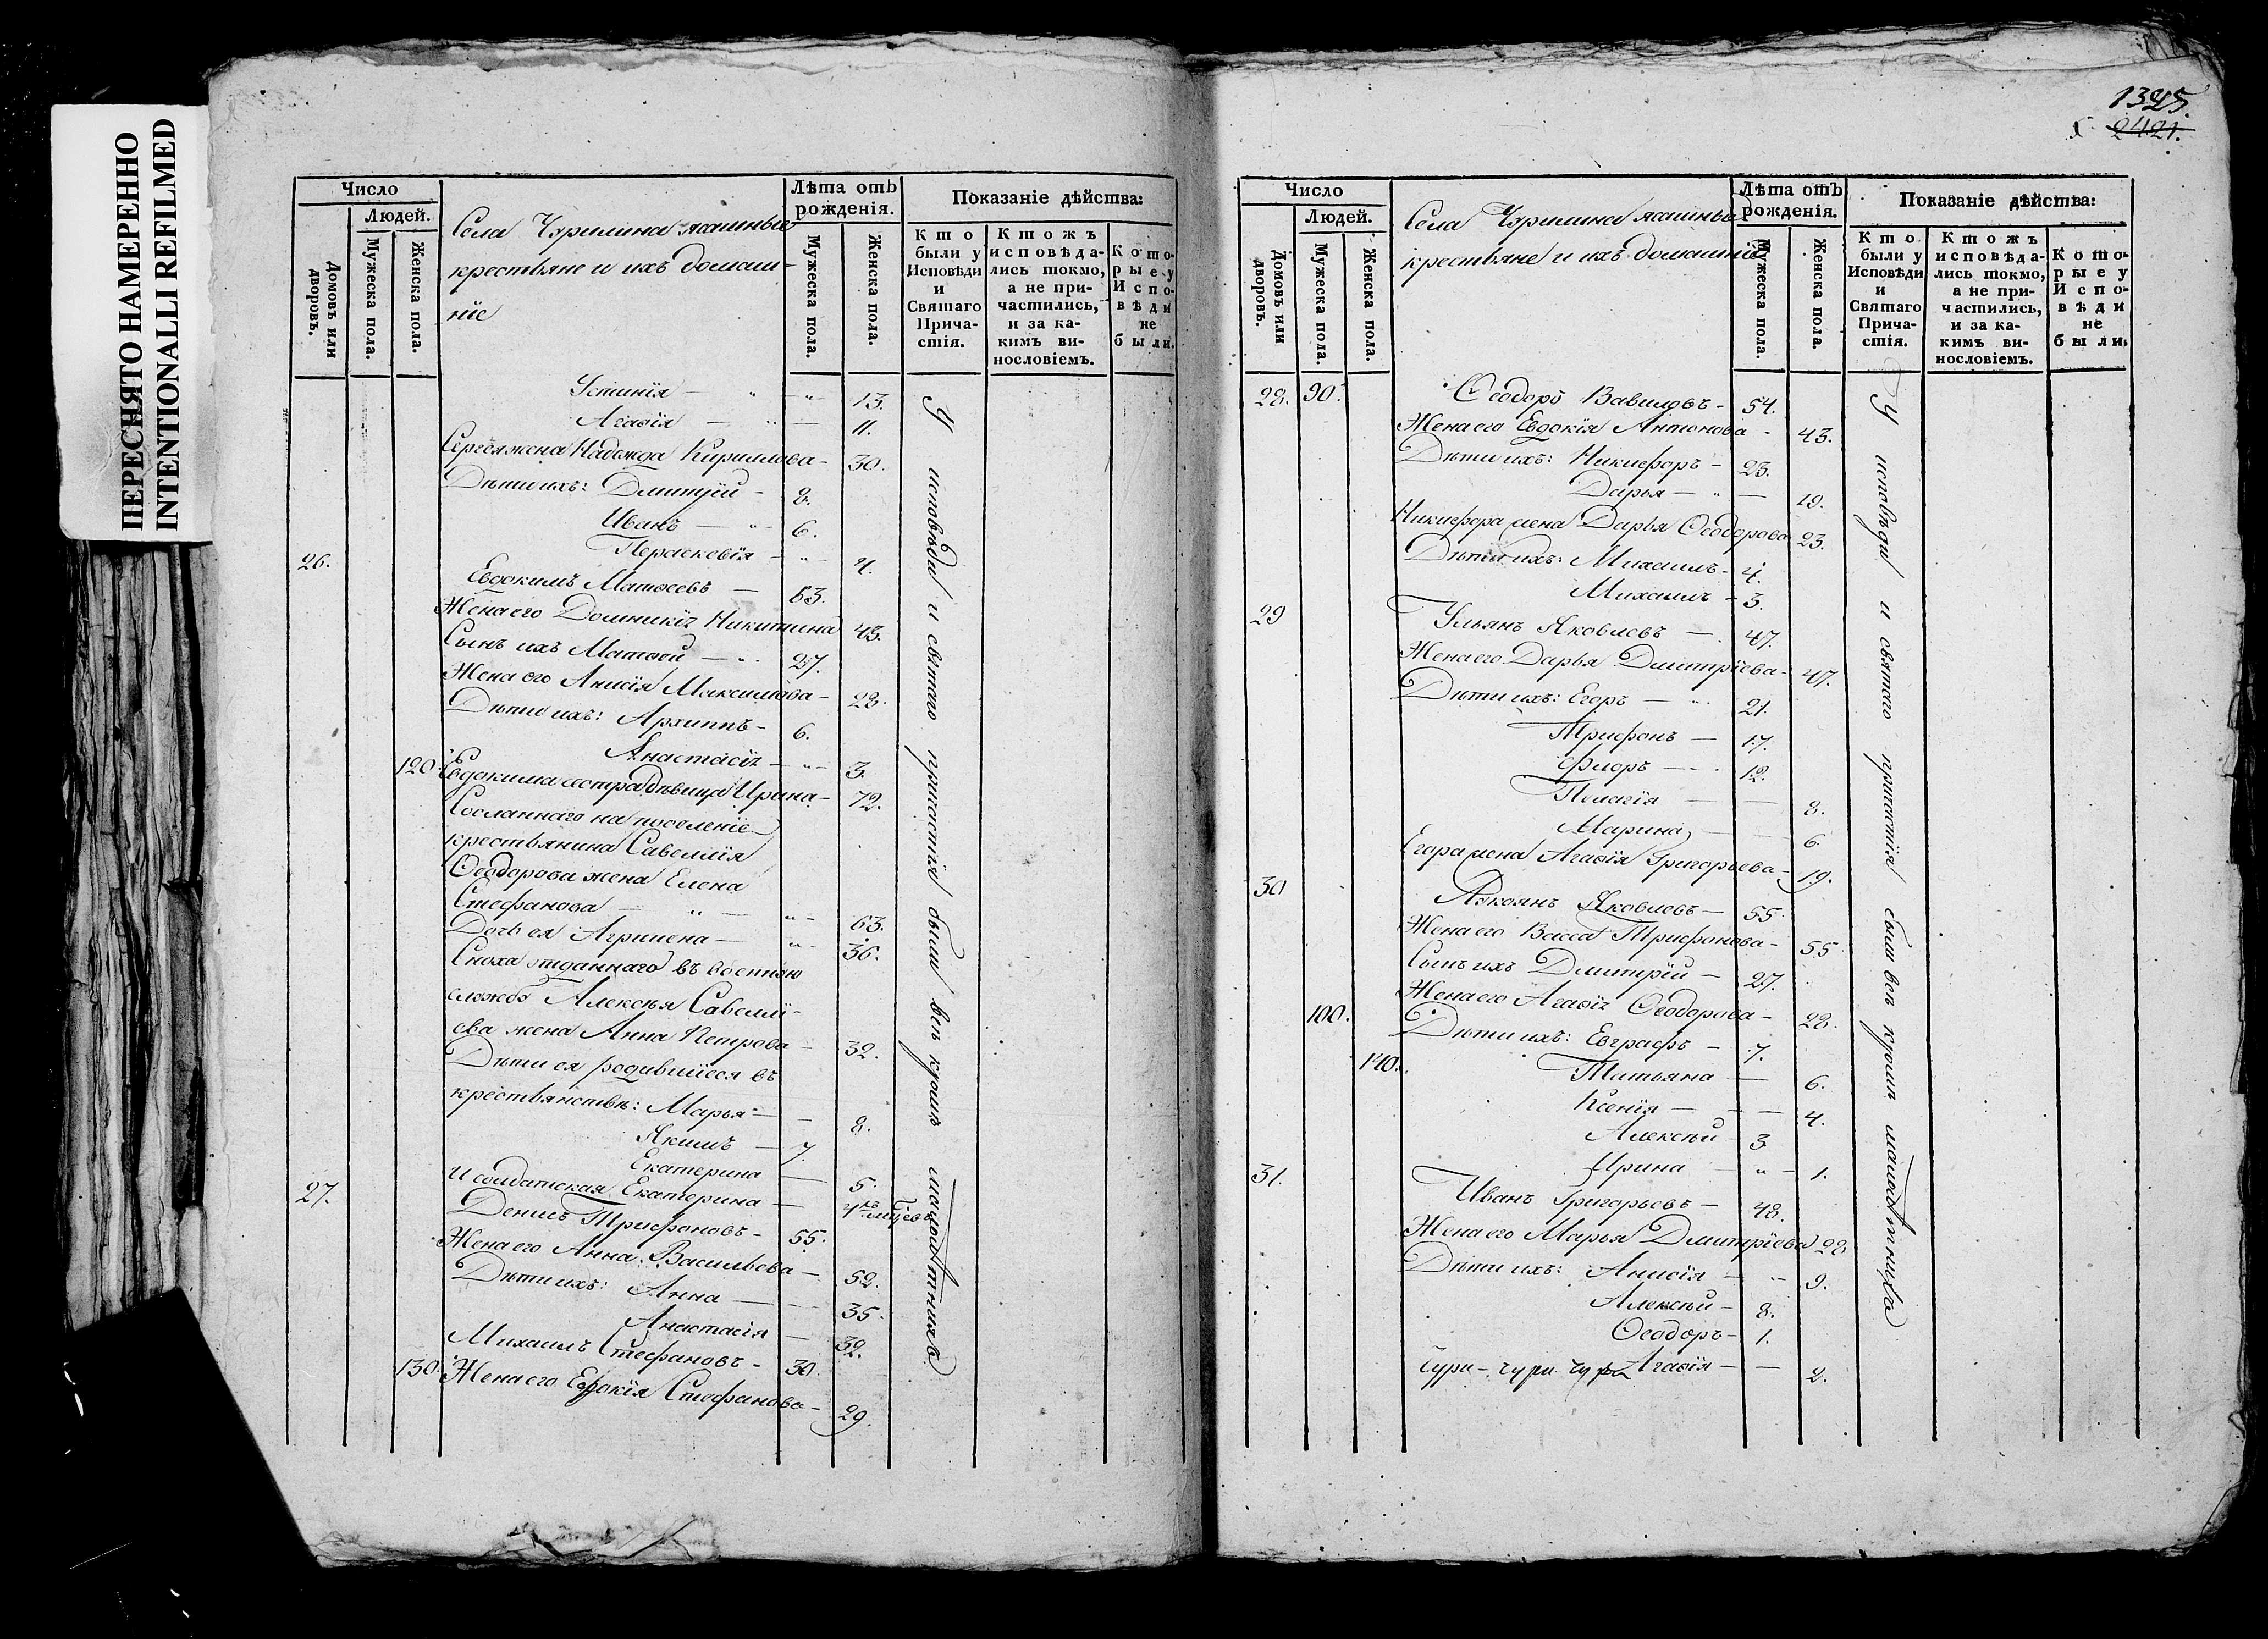 ПЕРЕСНЯТО НАМЕРЕННО
INTENTIONALLI REFILMED
Число
Людей.
Домовъ или дворовъ.
Мужеска пола.
Женска пола.
Села Чурилина ясашные
крестьяне и ихъ домаш-
ніе
Лѣта отъ рожденія.
Мужеска пола.
Женска пола.
Показаніе дѣйства:
Кто были у Исповѣди и Святаго Прича- стія.
Ктожъ исповѣда- лись токмо, а не при- частились, и за ка- кимъ ви- нословіемъ.
Кото- рые у Испо- вѣди не были.
Устинія — 13.
Агафія — 11.
Сергея жена Надежда Кириллова — 30.
Дѣти ихъ: Дмитрій — 8.
Иванъ — 6.
Парасковія — 4.
26. Евдокимъ Матвеевъ — 63.
Жена его Домникія Никитина 43.
Сынъ ихъ Матвей — 27.
Жена его Анисія Максимова — 28.
Дѣти ихъ: Архиппъ — 6.
Анастасія — 3.
120. Евдокима сестра дѣвица Ирина — 72.
Сосланнаго на поселеніе
крестьянина Савелія
Ѳеодорова жена Елена
Стефанова — 63.
Дочь ея Агрипена — 36.
Сноха отданнаго въ военную
службу Алексѣя Савелі-
ева жена Анна Петрова — 32.
Дѣти ея родившіеся въ
крестьянствѣ: Марья — 8.
Якимъ — 7.
Екатерина — 5.
И солдатская Екатерина —
27. Денисъ Трифоновъ — 55.
Жена его Анна Васильева — 52.
Дѣти ихъ: Анна — 35.
Анастасія — 32.
Михаилъ Стефановъ — 30.
130. Жена его Евдокія Стефанова — 29.
У исповѣди и святаго причастія были всѣ кромѣ малолѣтнихъ
1325
2421.
Число
Людей.
Домовъ или дворовъ.
Мужеска пола.
Женска пола.
Села Чурилина ясашные
крестьяне и ихъ домашніе
Лѣта отъ рожденія.
Мужеска пола.
Женска пола.
Показаніе дѣйства:
Кто были у Исповѣди и Святаго Прича- стія.
Ктожъ исповѣда- лись токмо, а не при- частились, и за ка- кимъ ви- нословіемъ.
Кото- рые у Испо- вѣди не были.
28. 90. Ѳеодоръ Вавиловъ — 54.
Жена его Евдокія Антонова — 43.
Дѣти ихъ: Никифоръ — 23.
Дарья — 19.
Никифора жена Дарья Ѳеодорова 23.
Дѣти ихъ: Михаилъ — 4.
Михаилъ — 3.
29 Ульянъ Яковлевъ — 47.
Жена его Дарья Дмитріева — 47.
Дѣти ихъ: Егоръ — 21.
Трифонъ — 17.
Флоръ — 12.
Пелагія — 8.
Марина — 6.
Егора жена Агафія Григорьева — 19.
30 Лукоянъ Яковлевъ — 55.
Жена его Васса Трифонова — 55
Сынъ ихъ Дмитрій — 27.
Жена его Агафія Ѳеодорова — 28.
100. Дѣти ихъ: Евграфъ — 7.
140. Татьяна — 6.
Ксенія — 4.
Алексѣй 3
Ирина — 1.
31. Иванъ Григорьевъ — 48.
Жена его Марья Дмитріева 28
Дѣти ихъ: Анисія — 9.
Алексѣй — 8.
Ѳеодоръ — 1.
Агафія — 2.
У исповѣди и святаго причастія были всѣ кромѣ малолѣтнихъ